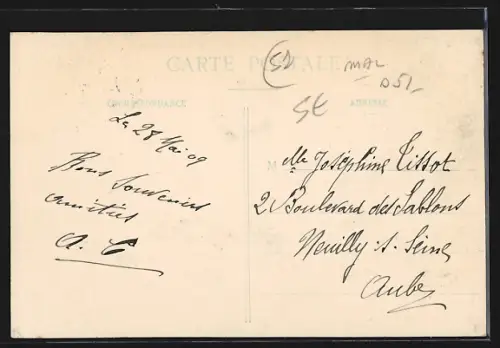 CARTE POSTALE
52
MAL
D51-
SE
CORRESPONDANCE
ADRESSE
Le 28 Mai 09
Bons Souvenirs
amitiés
A. C
Mlle Joséphine Tissot
2 Boulevard des Sablons
Neuilly s. Seine
Aube